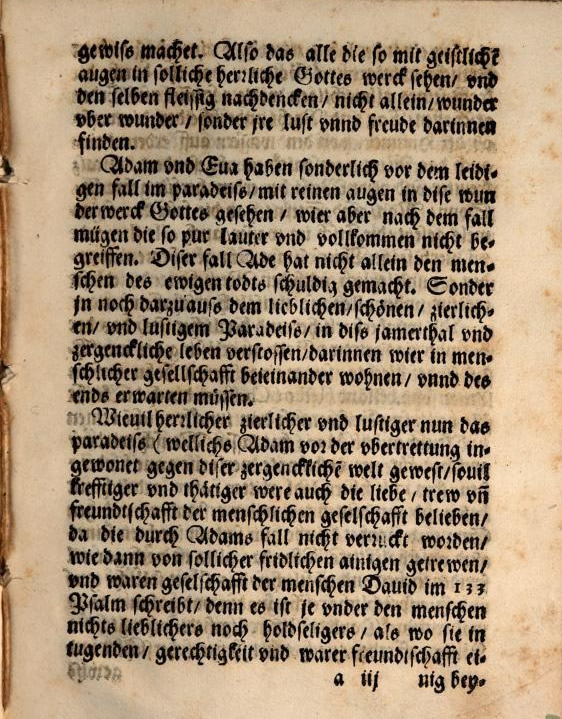 gewiſs machet. Also das alle die so mit geistlichē
augen in solliche herrliche Gottes werck sehen/ vnd
den selben fleissig nachdencken/ nicht allein/wunder
vber wunder / sonder jre lust vnnd freude darinnen
finden.
Adam vnd Eua haben sonderlich vor dem leidi-
gen fall im paradeiss/mit reinen augen in dise wun
derwerck Gottes gesehen / wier aber nach dem fall
mügen die so pur lauter vnd vollkommen nicht be-
greiffen. Diser fall Ade hat nicht allein den men-
schen des ewigen todts schuldig gemacht. Sonder
jn noch darzu auss dem lieblichen/schönen/ zierlich-
en/ vnd lustigem Paradeiss/ in diss jamerthal vnd
zergenckliche leben verstossen/darinnen wier in men-
schlicher gesellschafft beieinander wohnen/ vnnd des
ends erwarten müssen.
Wieuil herrlicher zierlicher vnd lustiger nun das
paradeiss ( wellichs Adam vor der vbertrettung in-
gewonet gegen diser zergencklichē welt gewest/souil
krefftiger vnd thätiger were auch die liebe / trew vn̄
freundtschafft der menschlichen geselschafft belieben/
da die durch Adams fall nicht verruckt worden/
wie dann von sollicher fridlichen ainigen getrewen/
vnd waren geselschafft der menschen Dauid im 133
Psalm schreibt/ denn es ist je vnder den menschen
nichts lieblichers noch holdseligers/ als wo sie in
tugenden/ gerechtigkeit vnd warer freundtschafft ei-
a iij nig bey-